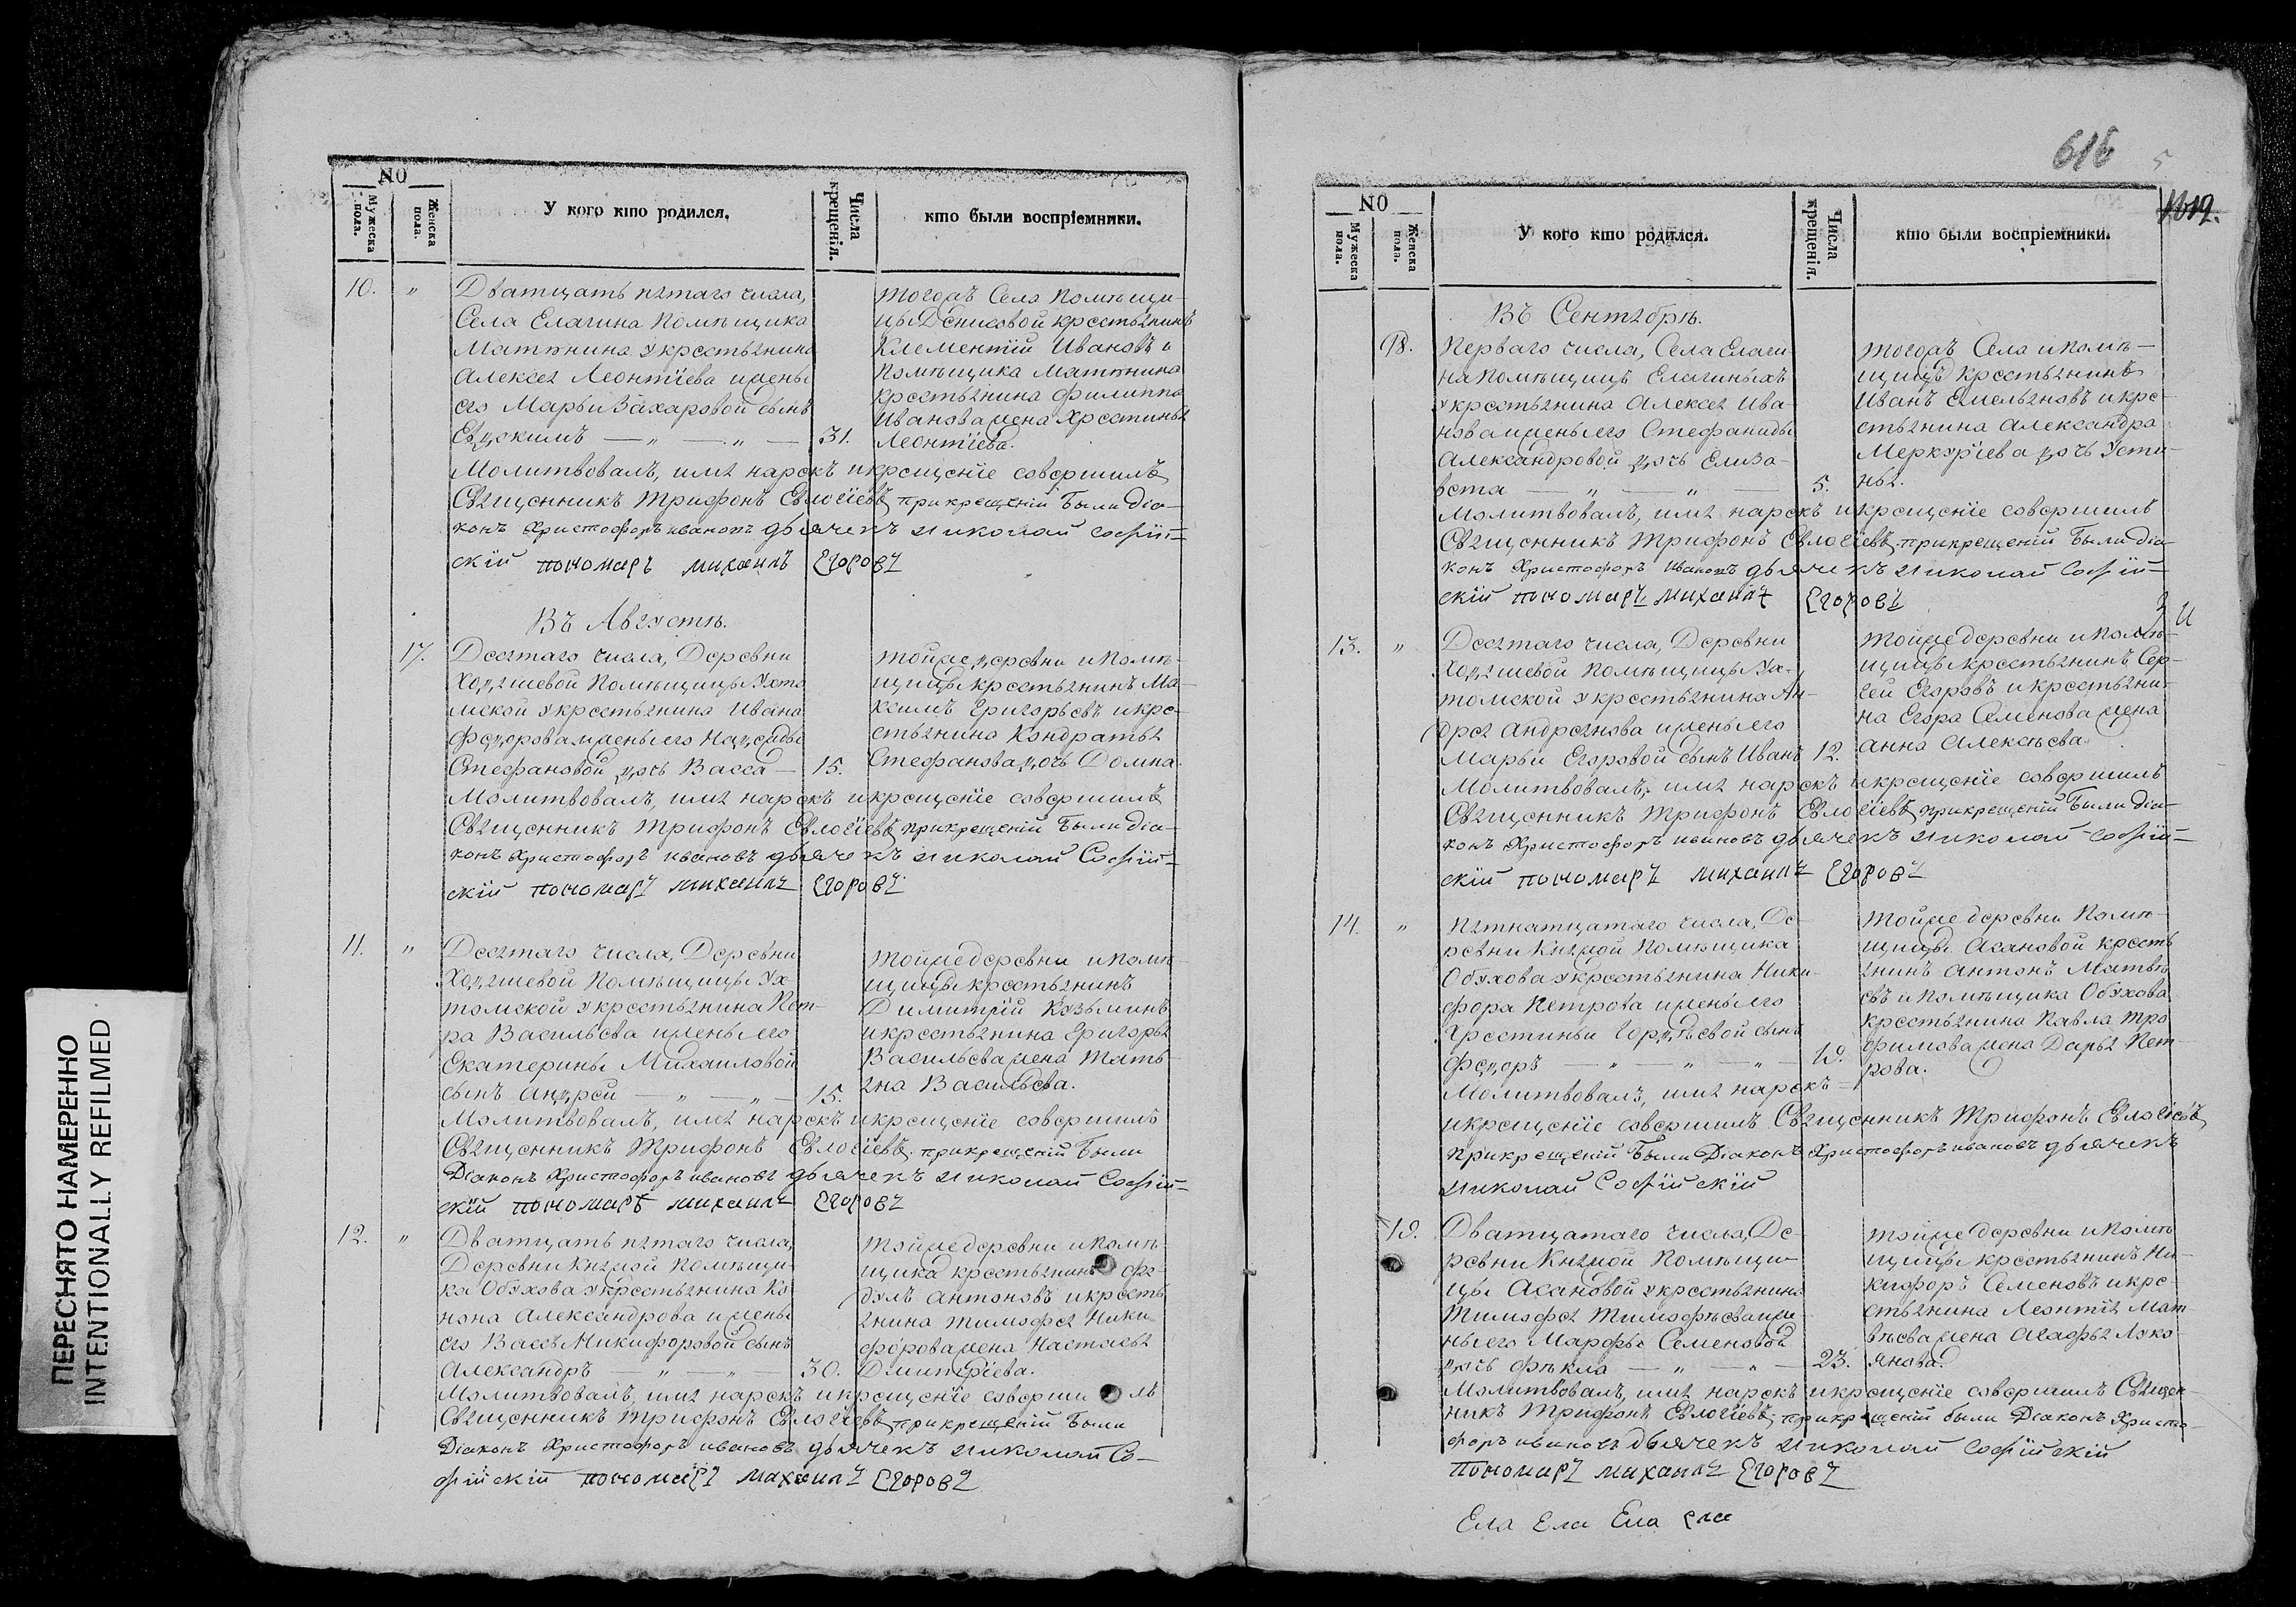 ПЕРЕСНЯТО НАМЕРЕННО
INTENTIONALLY REFILMED
NО
Мужеска пола.
Женска пола.
У кого кто родился.
Числа крещенія.
кто были воспріемники.
10. "
Дватцать пятаго числа,
Села Елагина Помѣщика
Матюнина у крестьянина
Алексея Леонтіева и жены
его Марьи Захаровой сынъ
Евдокимъ — " — " — 31.
тогожъ Села Помѣщи-
цы Денисовой крестьянинъ
Клементій Ивановъ и
Помѣщика Матюнина
крестьянина Филиппа
Иванова жена Хрестинья
Леонтіева.
Молитвовалъ, имя нарекъ и крещеніе совершилъ
Священникъ Трифонъ Евлогіевъ при крещеніи Были Діа-
конъ Христофоръ ивановъ дьячекъ Николай Софій-
скій пономаръ михаилъ Егоровъ
Въ Августѣ.
17.
Десятаго числа, Деревни
Ходяшевой Помѣщицы Ухто
мской у крестьянина Ивана
Федорова и жены его Надежды
Стефановой дочь Васса — 15.
тойже деревни и Помѣ-
щицы крестьянинъ Ма-
ксимъ Григорьевъ и кре-
стьянина Кондратья
Стефанова дочь Домна.
Молитвовалъ, имя нарекъ и крещеніе совершилъ
Священникъ Трифонъ Евлогіевъ при крещеніи Были Діа-
конъ Христофоръ ивановъ дьячекъ Николай Софій-
скій пономаръ михаилъ Егоровъ
11. "
Десятаго числа, Деревни
Ходяшевой Помѣщицы Ух
томской у крестьянина Пет-
ра Васильева и жены его
Екатерины Михаиловой
сынъ Андрей — " — " — 15.
тойже деревни и Помѣ-
щицы крестьянинъ
Димитрій Кузьминъ
и крестьянина Григорья
Васильева жена Тать-
яна Васильева.
Молитвовалъ, имя нарекъ и крещеніе совершилъ
Священникъ Трифонъ Евлогіевъ. при крещеніи Были
Діаконъ Христофоръ ивановъ дьячекъ Николай Софій-
скій пономаръ михаилъ Егоровъ
12. "
Дватцать пятаго числа,
Деревни Княжой Помѣщи-
ка Обухова у крестьянина Ко
нона Александрова и жены
его Вассы Никифоровой сынъ
Александръ — " — " — 30.
тойже деревни и Помѣ-
щика крестьянинъ Фе-
дулъ Антоновъ и кресть
янина Тимофея Ники
форова жена Настасья
Дмитріева.
Молитвовалъ, имя нарекъ и крещеніе соверши лъ
Священникъ Трифонъ Евлогіевъ, при крещеніи Были
Діаконъ Христофоръ ивановъ дьячекъ Николай Со-
фійскій пономаръ михаилъ Егоровъ
616
NО
Мужеска пола.
Женска пола.
У кого кто родился.
Числа крещенія.
кто были воспріемники.
Въ Сентябрѣ.
18.
Перваго числа, Села Елаги-
на Помѣщицъ Елагиныхъ
у крестьянина Алексея Ива-
нова и жены его Стефаниды
Александровой дочь Елиза-
вета — " — " — 5.
тогожъ Села и Помѣ-
щицъ крестьянинъ
Иванъ Емельяновъ и кре-
стьянина Александра
Меркуріева дочь Усти-
нья.
Молитвовалъ, имя нарекъ и крещеніе совершилъ
Священникъ Трифонъ Евлогіевъ. при крещеніи Были Діа-
конъ Христофоръ ивановъ дьячекъ Николай Софій-
скій пономаръ михаилъ Егоровъ
13. "
Десятаго числа, Деревни
Ходяшевой Помѣщицы Ух-
томской у крестьянина Ан-
дрея Андреянова и жены его
Марьи Егоровой сынъ Иванъ 12.
тойже деревни и Помѣ-
щицы крестьянинъ Сер-
гей Егоровъ и крестьяни-
на Егора Семенова жена
Анна Алексѣева.
Молитвовалъ, имя нарекъ и крещеніе совершилъ
Священникъ Трифонъ Евлогіевъ при крещеніи Были Діа-
конъ Христофоръ ивановъ дьячекъ Николай Софій-
скій пономаръ михаилъ Егоровъ
14. "
Пятнатцатаго числа, Де-
ревни Княжой Помѣщика
Обухова у крестьянина Ники-
фора Петрова и жены его
Хрестиньи Гордѣевой сынъ
Федоръ — " — " — 19.
тойже деревни Помѣ-
щицы Асановой кресть
янинъ Антонъ Матвѣ
евъ и Помѣщика Обухова
крестьянина Павла Тро
фимова жена Дарья Пет-
рова.
Молитвовалъ, имя нарекъ —
и крещеніе совершилъ Священникъ Трифонъ Евлогіевъ,
при крещеніи Были Діаконъ Христофоръ ивановъ дьячекъ
Николай Софійскій
19.
Дватцатаго числа, Де-
ревни Княжой Помѣщи-
цы Асановой у крестьянина
Тимофея Тимофѣева и же
ны его Марфы Семеновой
дочь Фѣкла — " — " — 23.
тойже деревни и Помѣ
щицы крестьянинъ Ни-
кифоръ Семеновъ и кре-
стьянина Леонтія Мат-
вѣева жена Агафья Луко
янова.
Молитвовалъ, имя нарекъ и крещеніе совершилъ Священ-
никъ Трифонъ Евлогіевъ, при крещеніи были Діаконъ Христо-
форъ ивановъ дьячекъ Николай Софійскій
пономаръ михаилъ Егоровъ
Ела Ела Ела ела